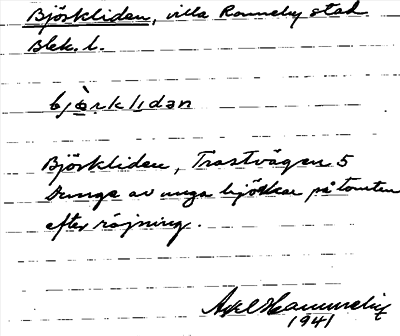 Björkliden, villa Ronneby stad
Blek. l.
bjò̤rklıdən
Björkliden, Trastvägen 5
Dunge av unga björkar på tomten
efter röjning.
Axel
1941